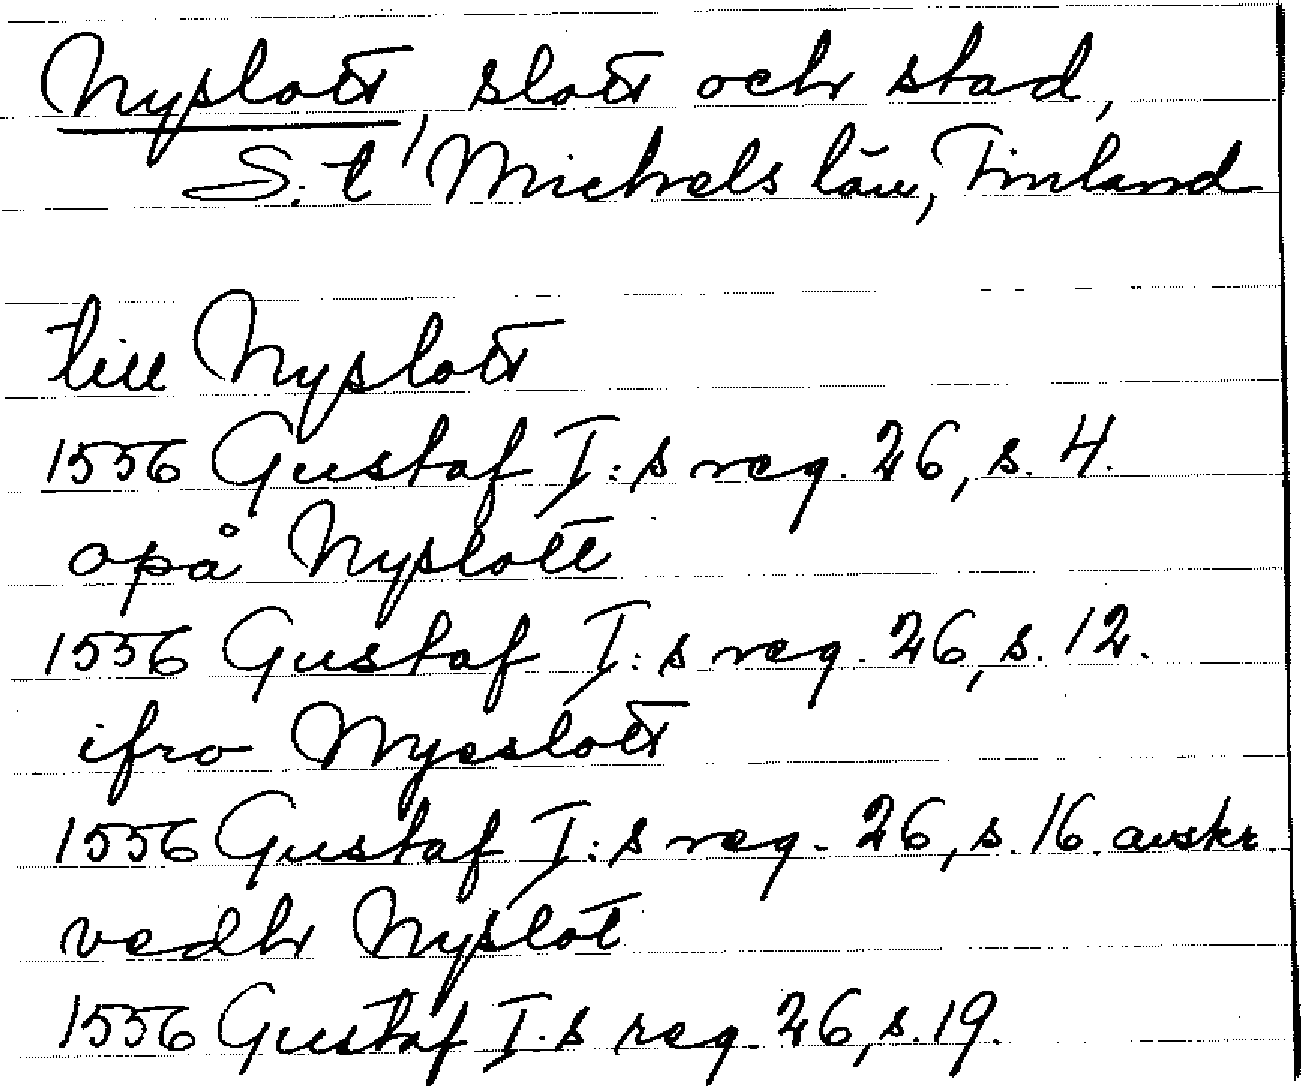 Nyslott, slott och stad,
S:t Michels län, Finland
till Nyslott
1556 Gustaf I:s reg. 26, s. 4.
opå Nyslott
1556 Gustaf I:s reg. 26, s. 12.
ifro Nyeslott
1556 Gustaf I:s reg. 26, s. 16. avskr.
vedh Nyslot
1556 Gustaf I:s reg. 26, s. 19.